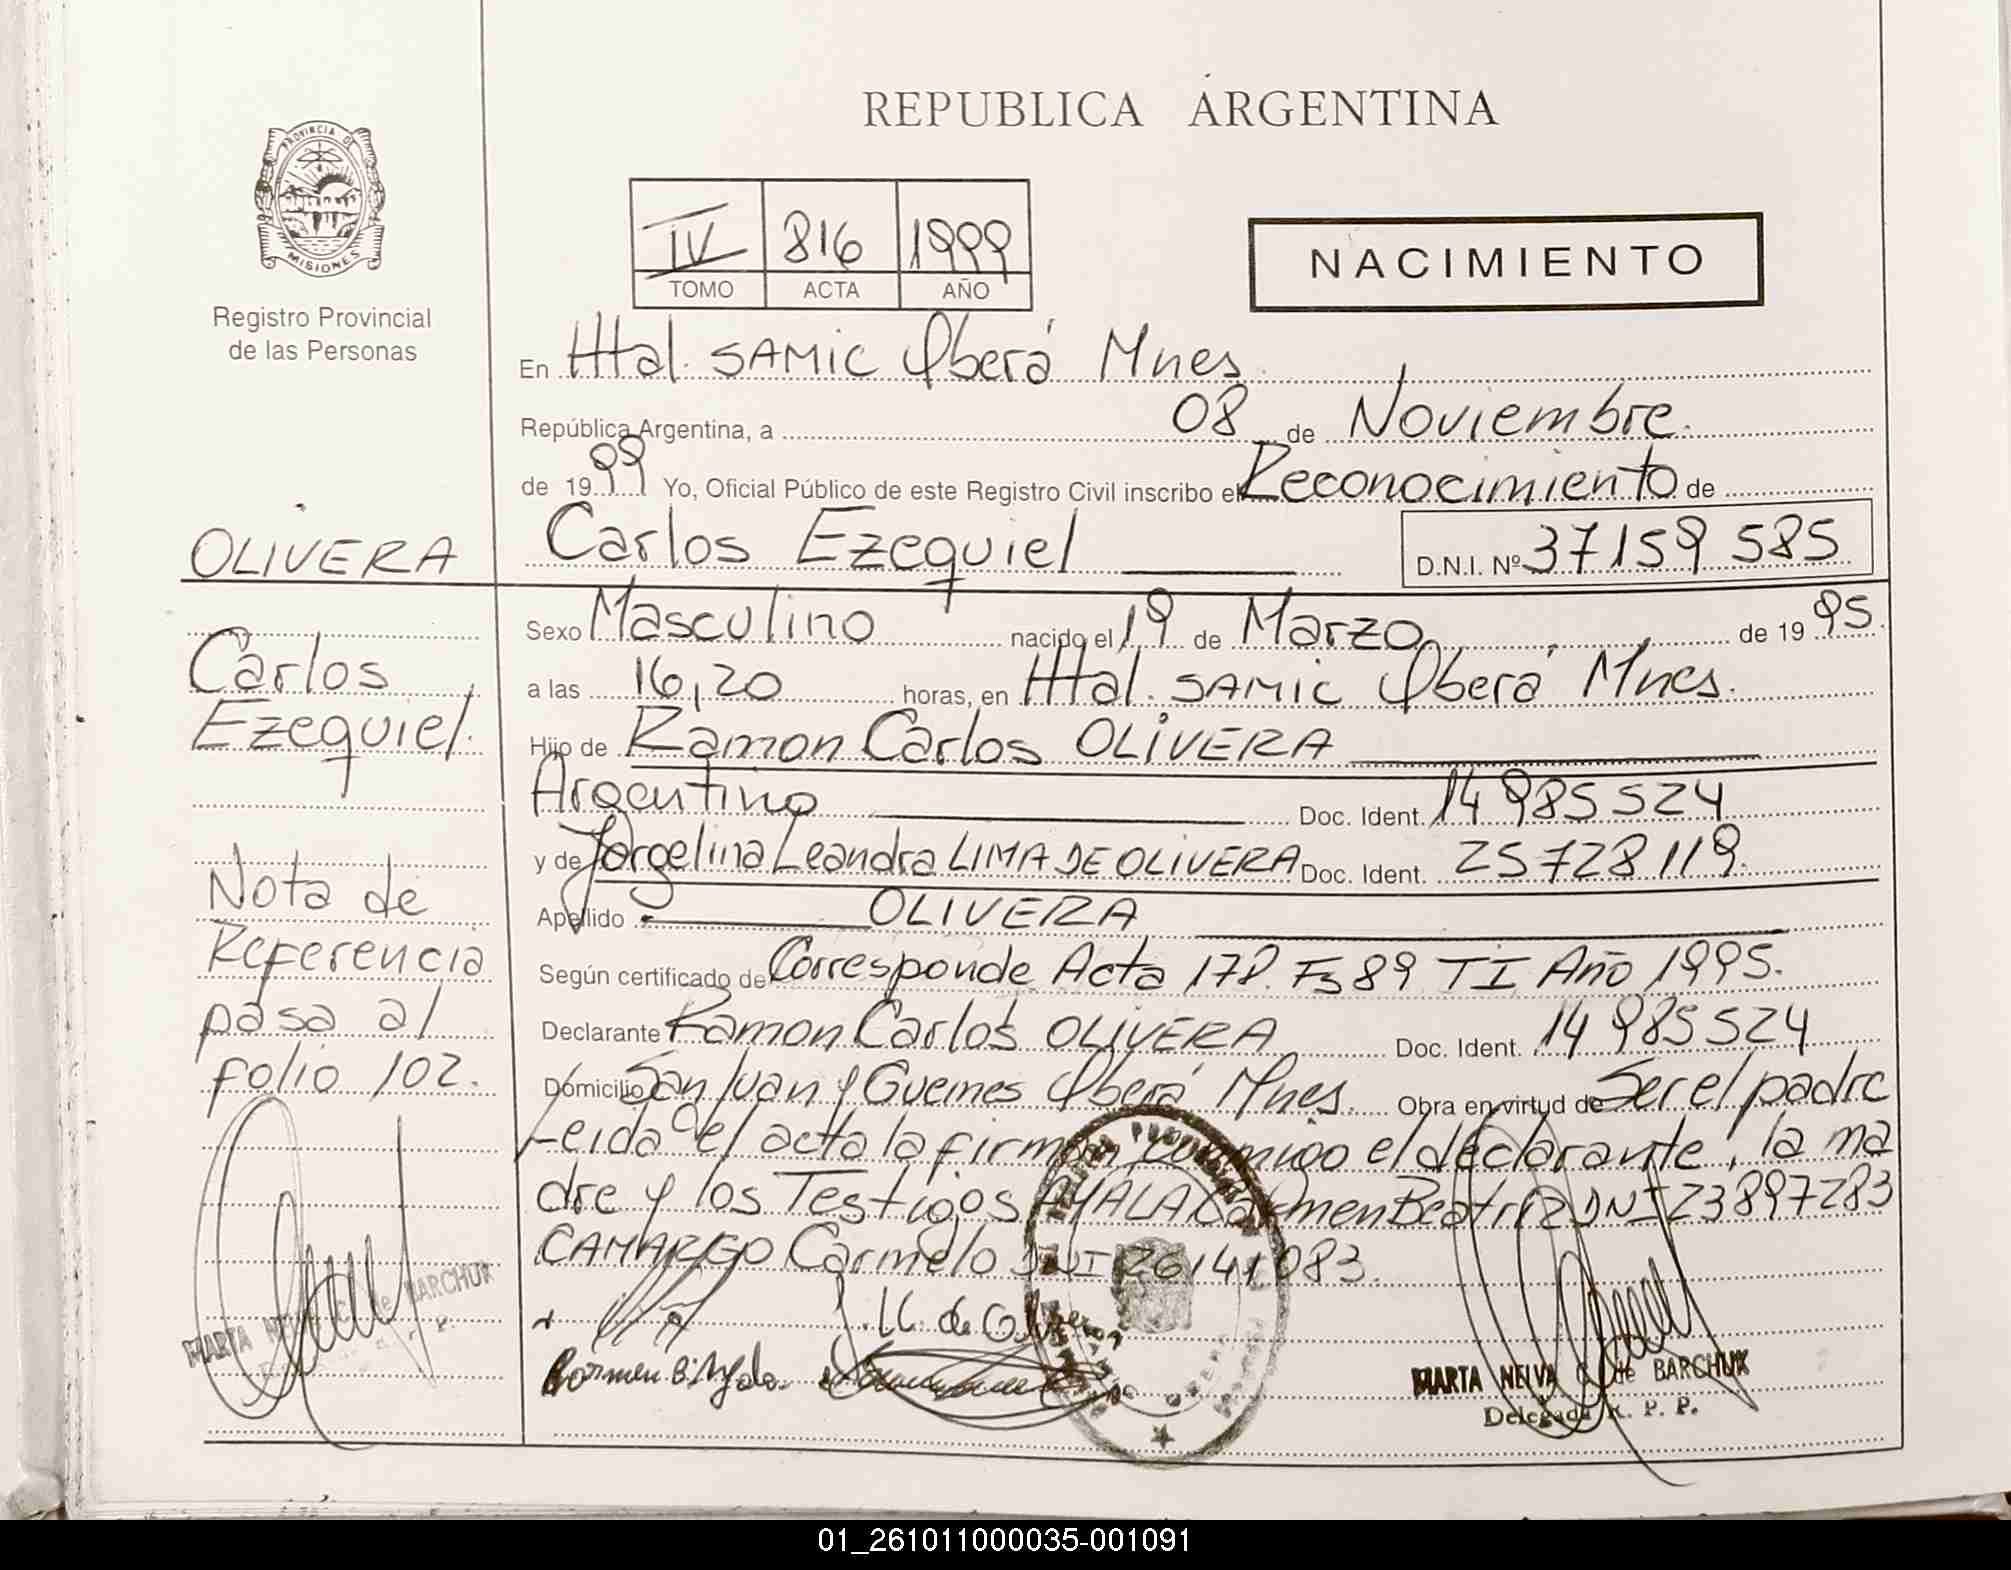 REPUBLICA ARGENTINA
PROVINCIA DE
MISIONES
Registro Provincial
de las Personas
IV 816 1999
TOMO ACTA AÑO
NACIMIENTO
En Httal. SAMIC Oberá Mnes.
República Argentina, a 08 de Noviembre.
de 1999 Yo, Oficial Público de este Registro Civil inscribo el Reconocimiento de
Carlos Ezequiel D.N.I. Nº 37159585
Sexo Masculino nacido el 19 de Marzo de 1995.
a las 16,20 horas, en Httal. SAMIC Oberá Mnes.
Hijo de Ramon Carlos OLIVERA
Argentino Doc. Ident. 14985524
y de Jorgelina Leandra LIMA DE OLIVERA Doc. Ident. 25728119.
Apellido OLIVERA
Según certificado de Corresponde Acta 178. Fs 89 TI Año 1995.
Declarante Ramon Carlos OLIVERA Doc. Ident. 14985524
Domicilio San Juan y Guemes Oberá Mnes. Obra en virtud de Ser el padre
Leida el acta la firman conmigo el declarante, la ma
dre y los Testigos AYALA Carmen Beatriz DNI 23897283
CAMARGO Carmelo DNI 26141083.
Carmen B. Ayala.
MARTA NEIVA C. de BARCHUK
Delegada R. P. P.
OLIVERA
Carlos
Ezequiel.
Nota de
Referencia
pasa al
folio 102.
MARTA NEIVA C. de BARCHUK
01_261011000035-001091